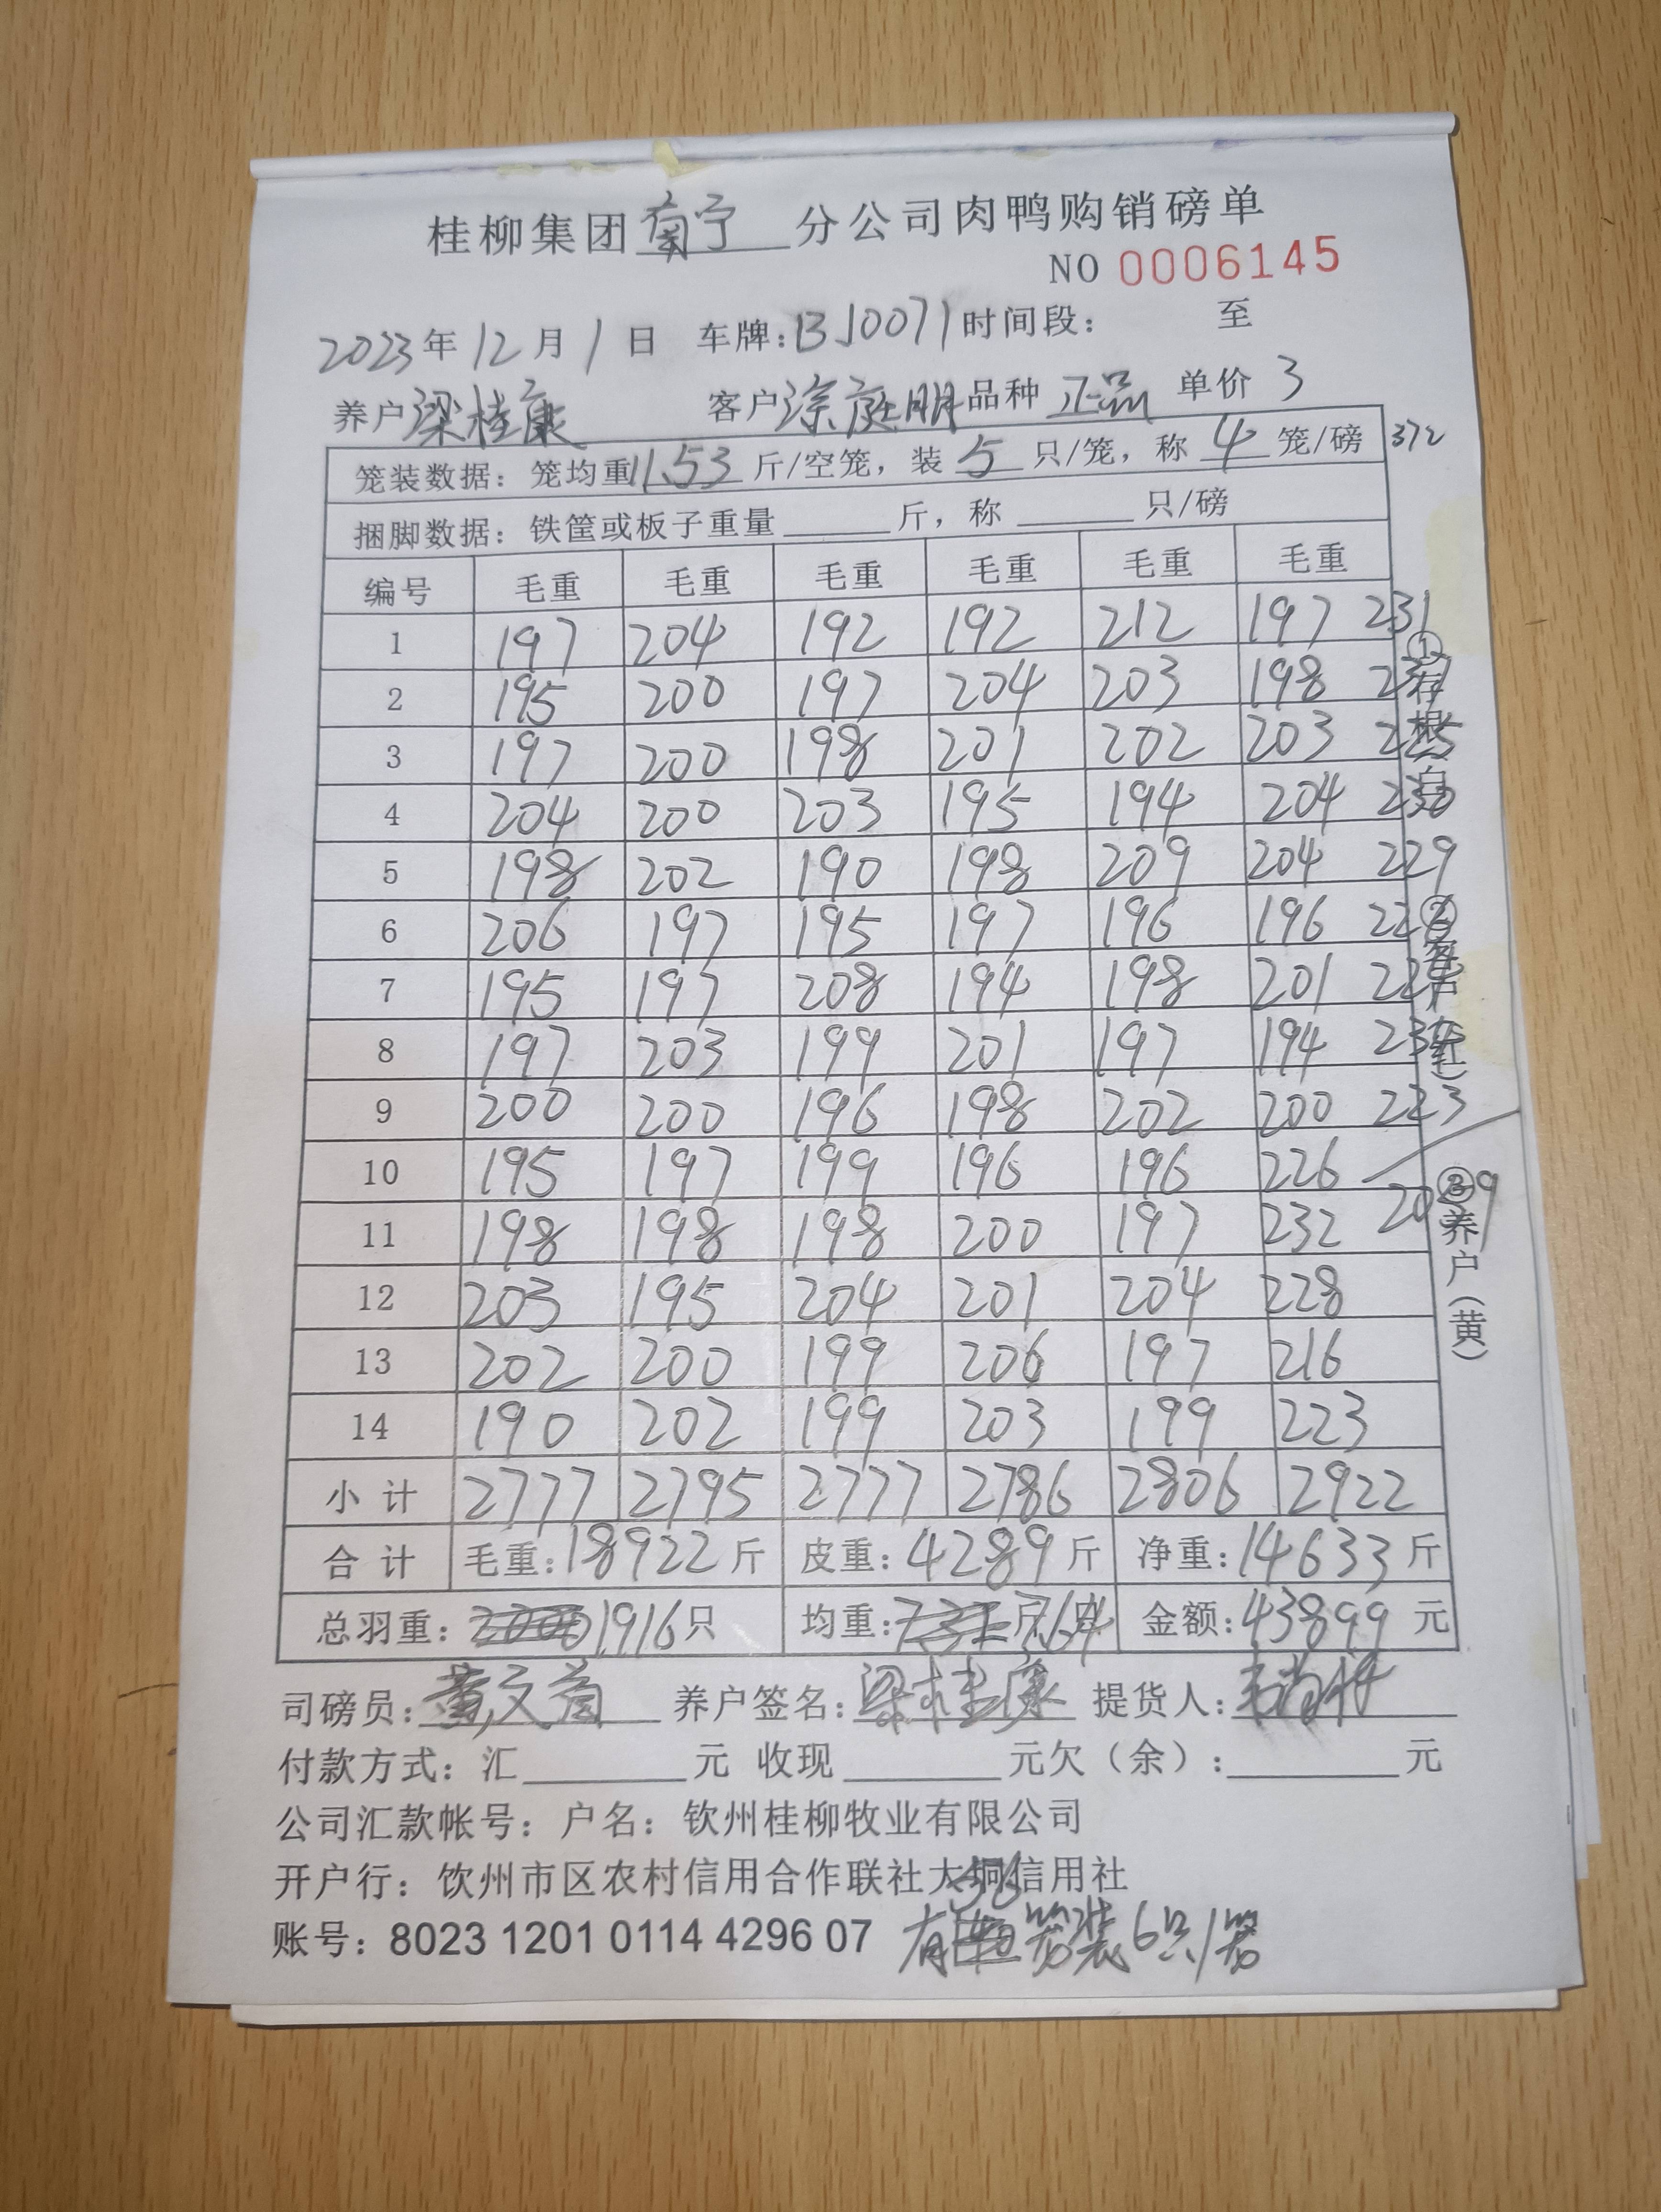 桂柳集团南宁分公司肉鸭购销磅单
NO 0006145
2023年12月1日 车牌:BJ0071 时间段: 至
养户梁桂康 客户涂庭明 品种 正品 单价 3
笼装数据:笼均重11.53斤/空笼,装5只/笼,称4笼/磅 372
捆脚数据:铁筐或板子重量 斤,称 只/磅
编号 毛重 毛重 毛重 毛重 毛重 毛重
1 197 204 192 192 212 197 231
2 195 200 197 204 203 198
3 197 200 198 201 202 203 225
4 204 200 203 195 194 204 230
5 198 202 190 198 209 204 229
6 206 197 195 197 196 196
7 195 197 208 194 198 201
8 197 203 199 201 197 194
9 200 200 196 198 202 200 223
10 195 197 199 196 196 226
11 198 198 198 200 197 232 2059
12 203 195 204 201 204 228
13 202 200 199 206 197 216
14 190 202 199 203 199 223
小计 2777 2795 2777 2786 2806 2922
合计 毛重:18922斤 皮重:4289斤 净重:14633斤
总羽重:1916只 均重:7.64 金额:43899元
司磅员:黄文 养户签名:梁桂康 提货人:
付款方式:汇 元 收现 元欠(余): 元
公司汇款帐号:户名:钦州桂柳牧业有限公司
开户行:钦州市区农村信用合作联社大垌信用社
账号:8023 1201 0114 4296 07 有56笼装6只/笼
①存根(白)
②客户(红)
③养户(黄)